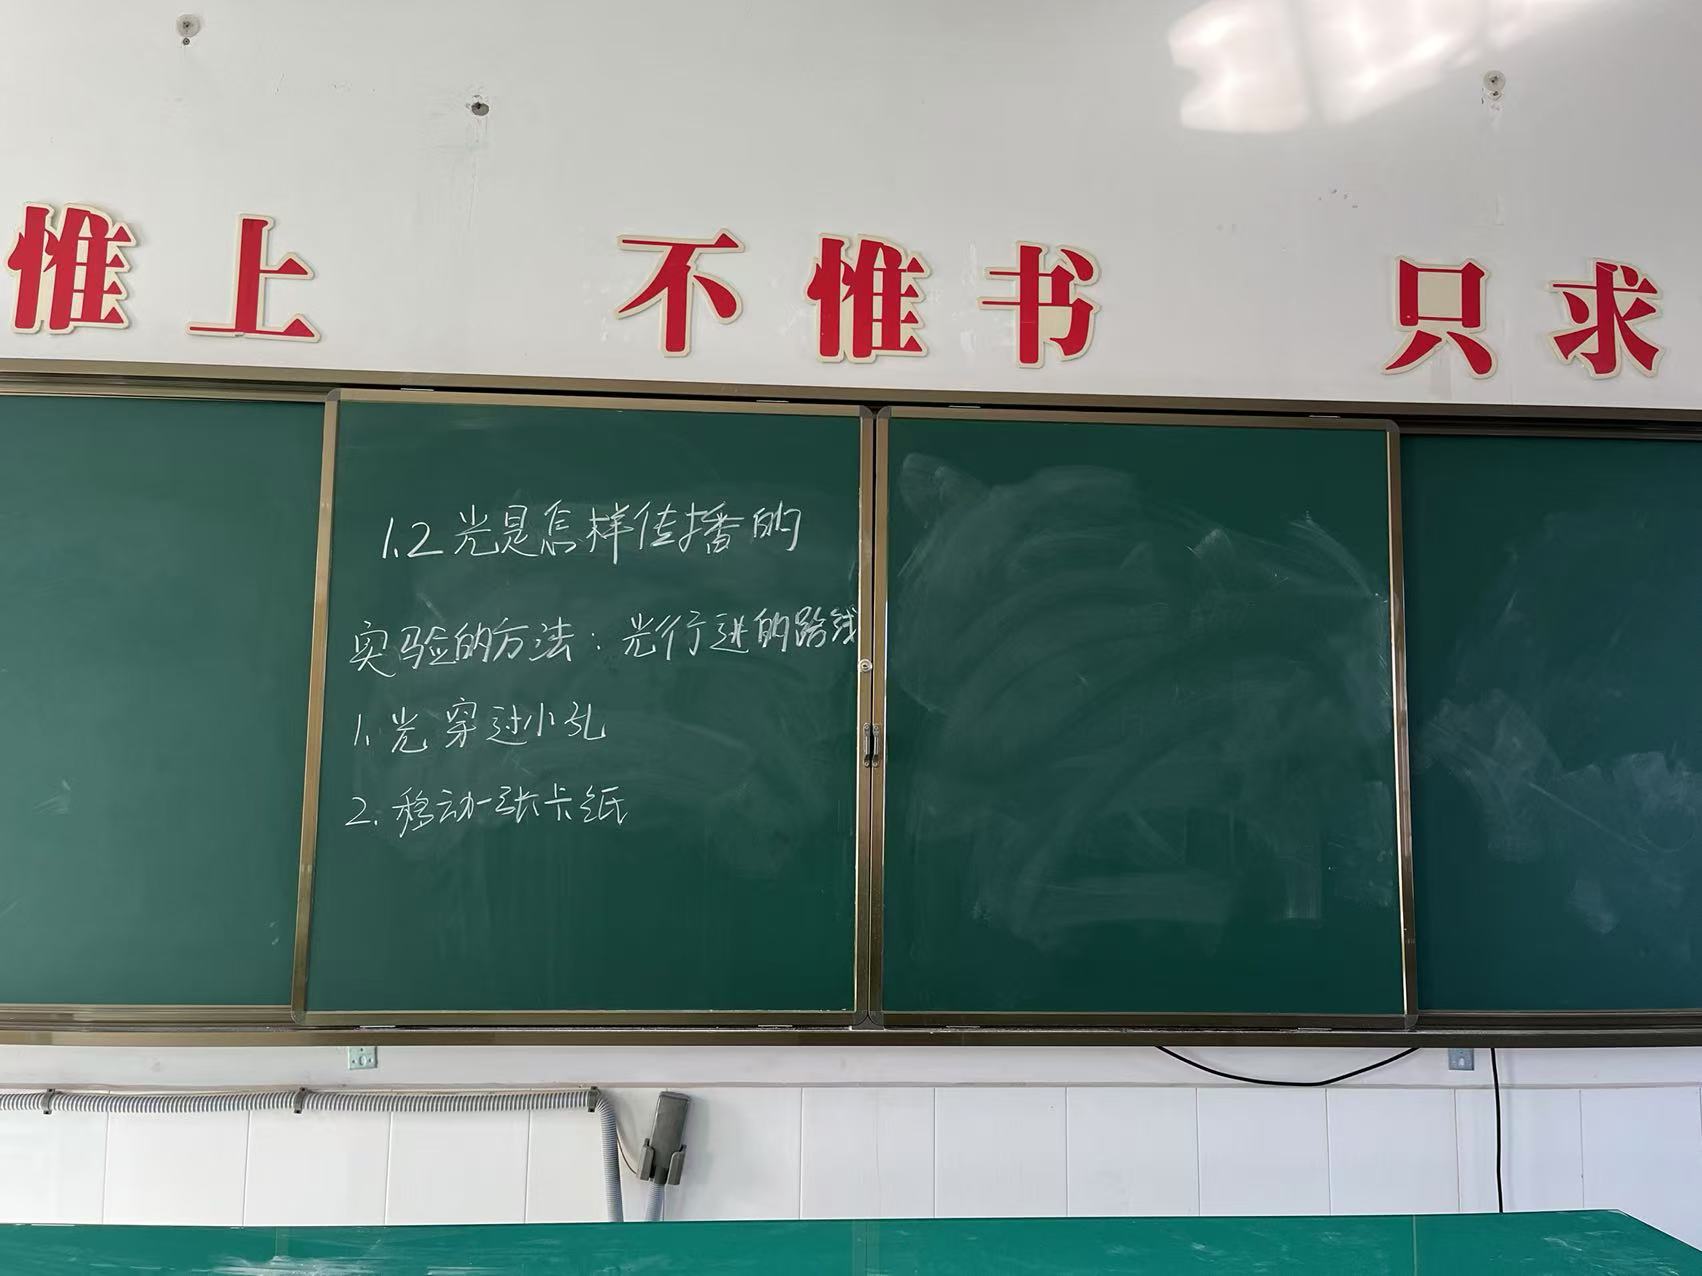 惟上 不惟书 只求
1.2光是怎样传播的
实验的方法：光行进的路线
1.光穿过小孔
2.移动一张卡纸